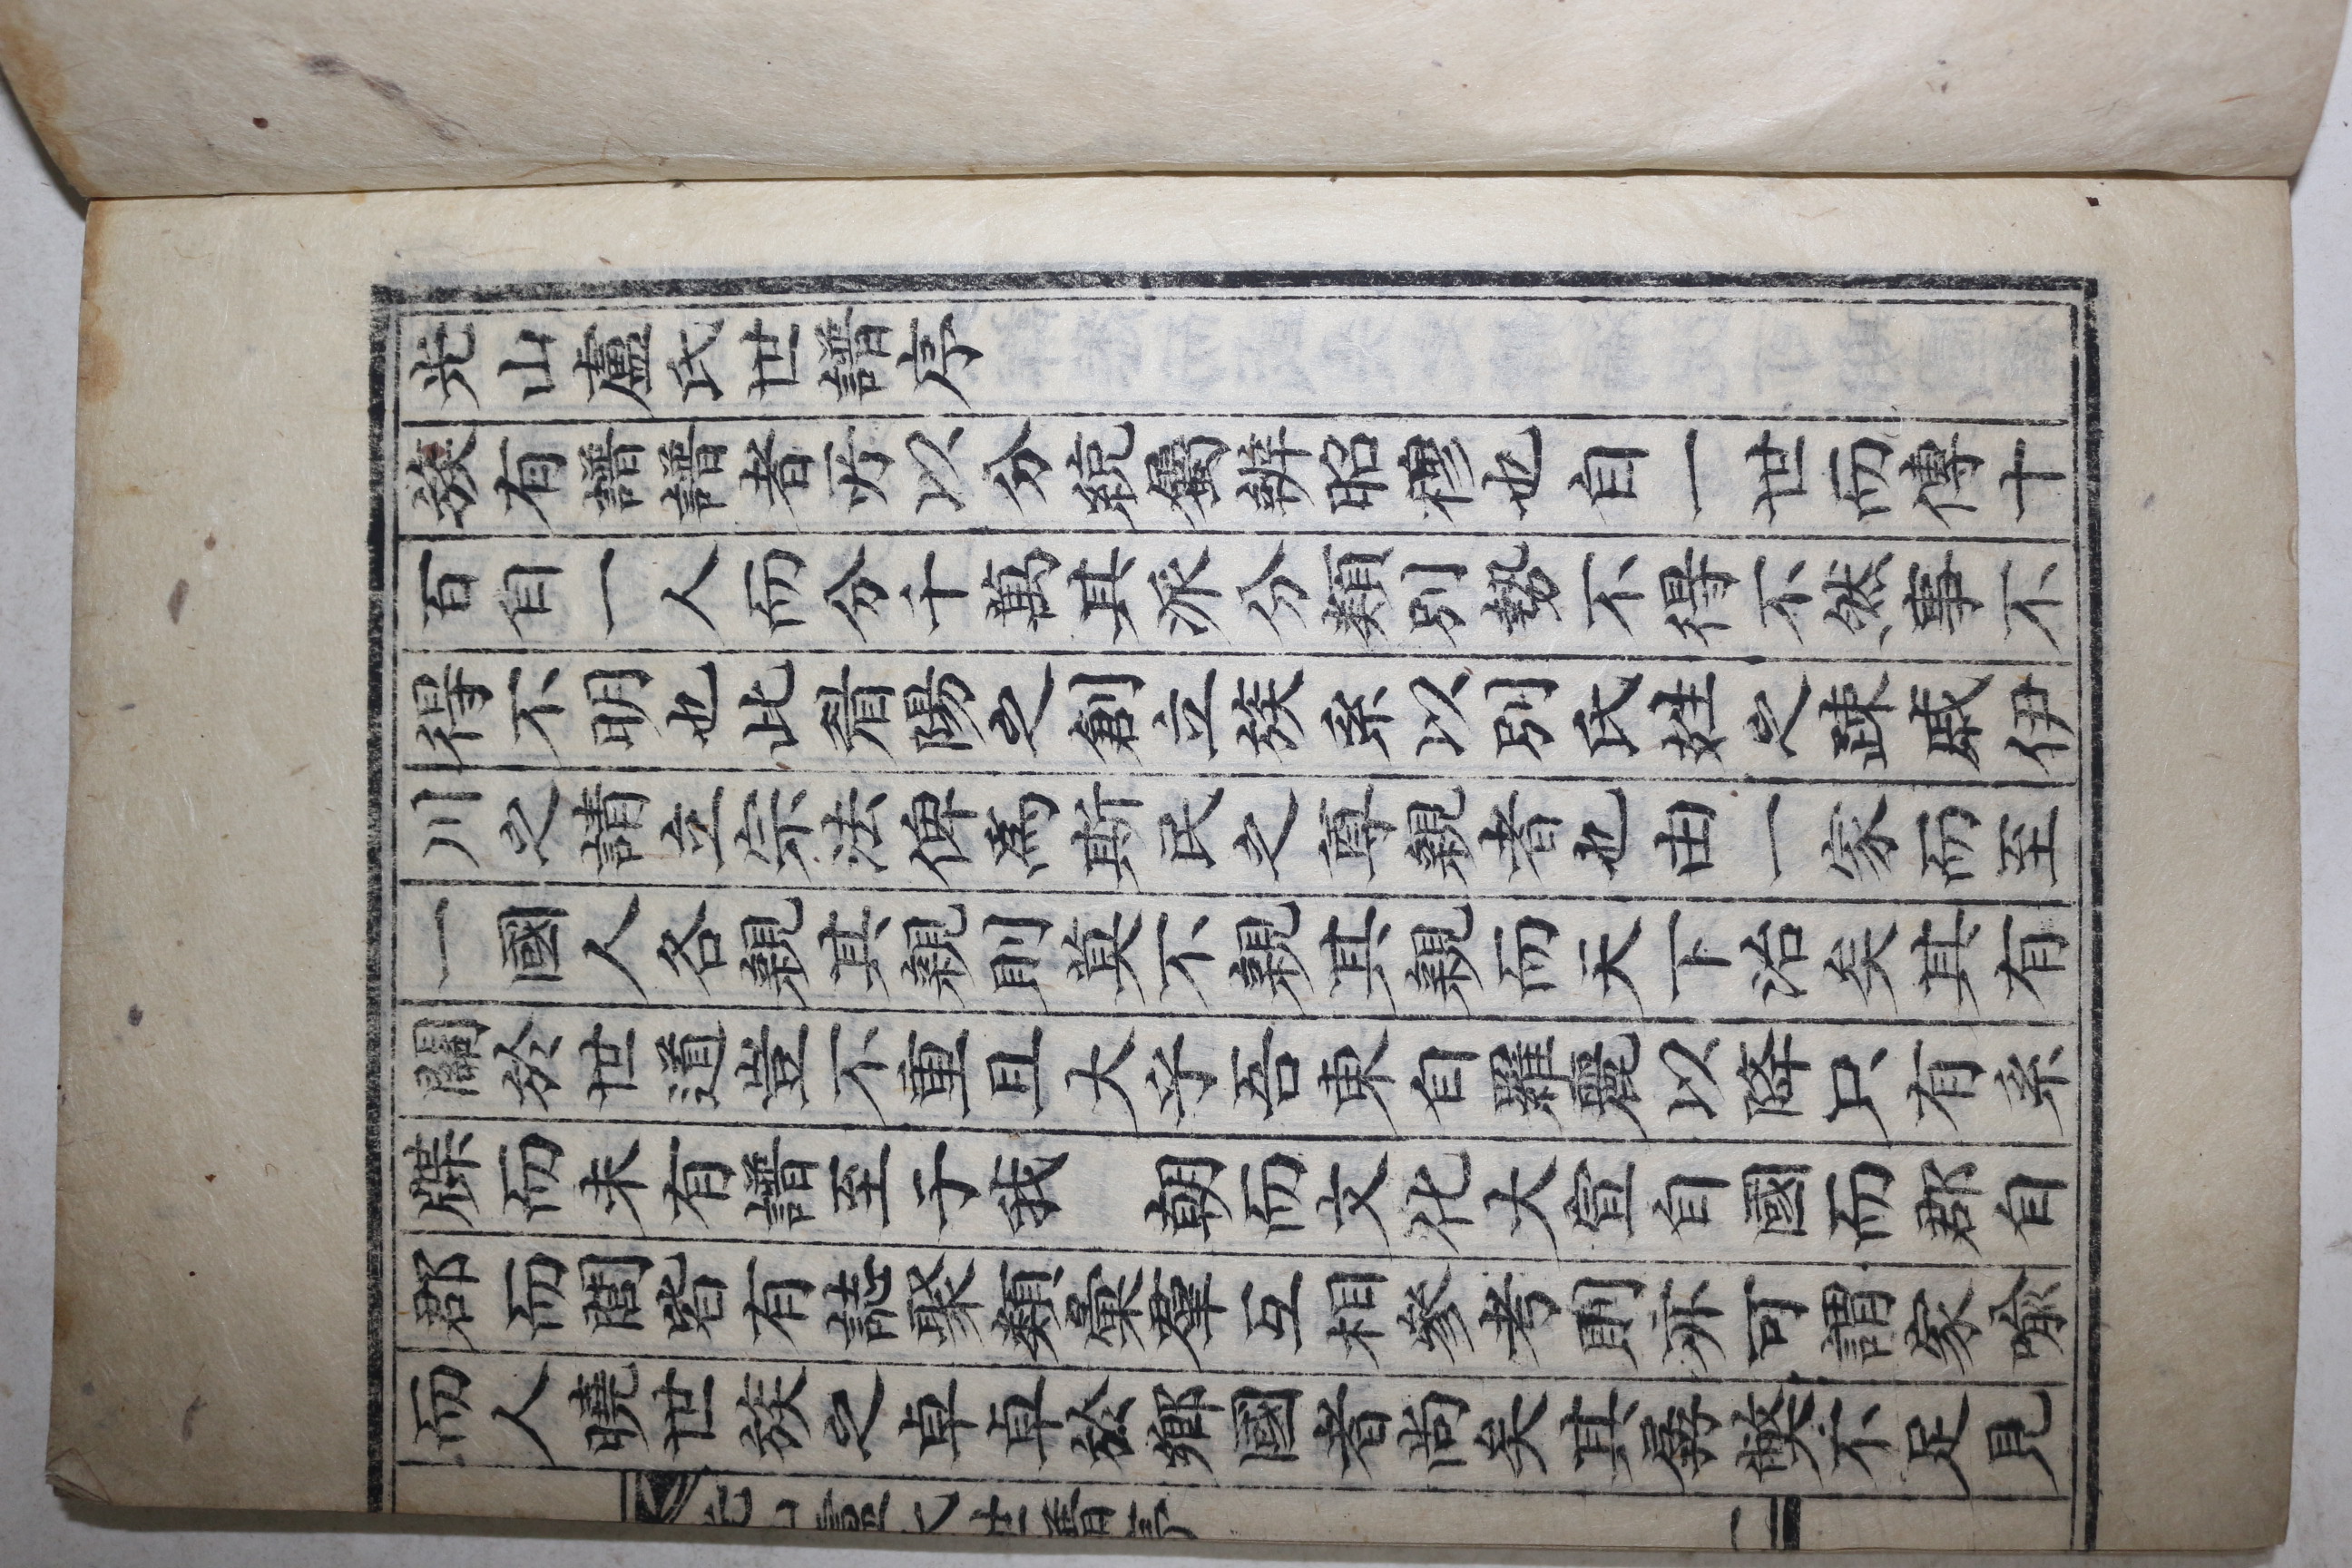 光山盧氏世譜序
族有譜譜者所以分統屬辨昭穆也自一世而傳十
百自一人而分千萬其派分類別勢不得不然事不
得不明也此眉陽之創立族系以別氏姓之疎戚伊
川之請立宗法俾爲斯民之尊親者也由一家而至
一國人各親其親則莫不親其親而天下治矣其有
關於世道豈不重且大乎吾東自羅麗以降只有系
牒而未有譜至于我　朝而文化大宣自國而郡自
郡而閭皆有誌聚類彙羣互相參考則亦可謂家喩
而人曉世族之卓卓於鄕國者尚矣其孱弊不足見
光山盧氏世譜序
二